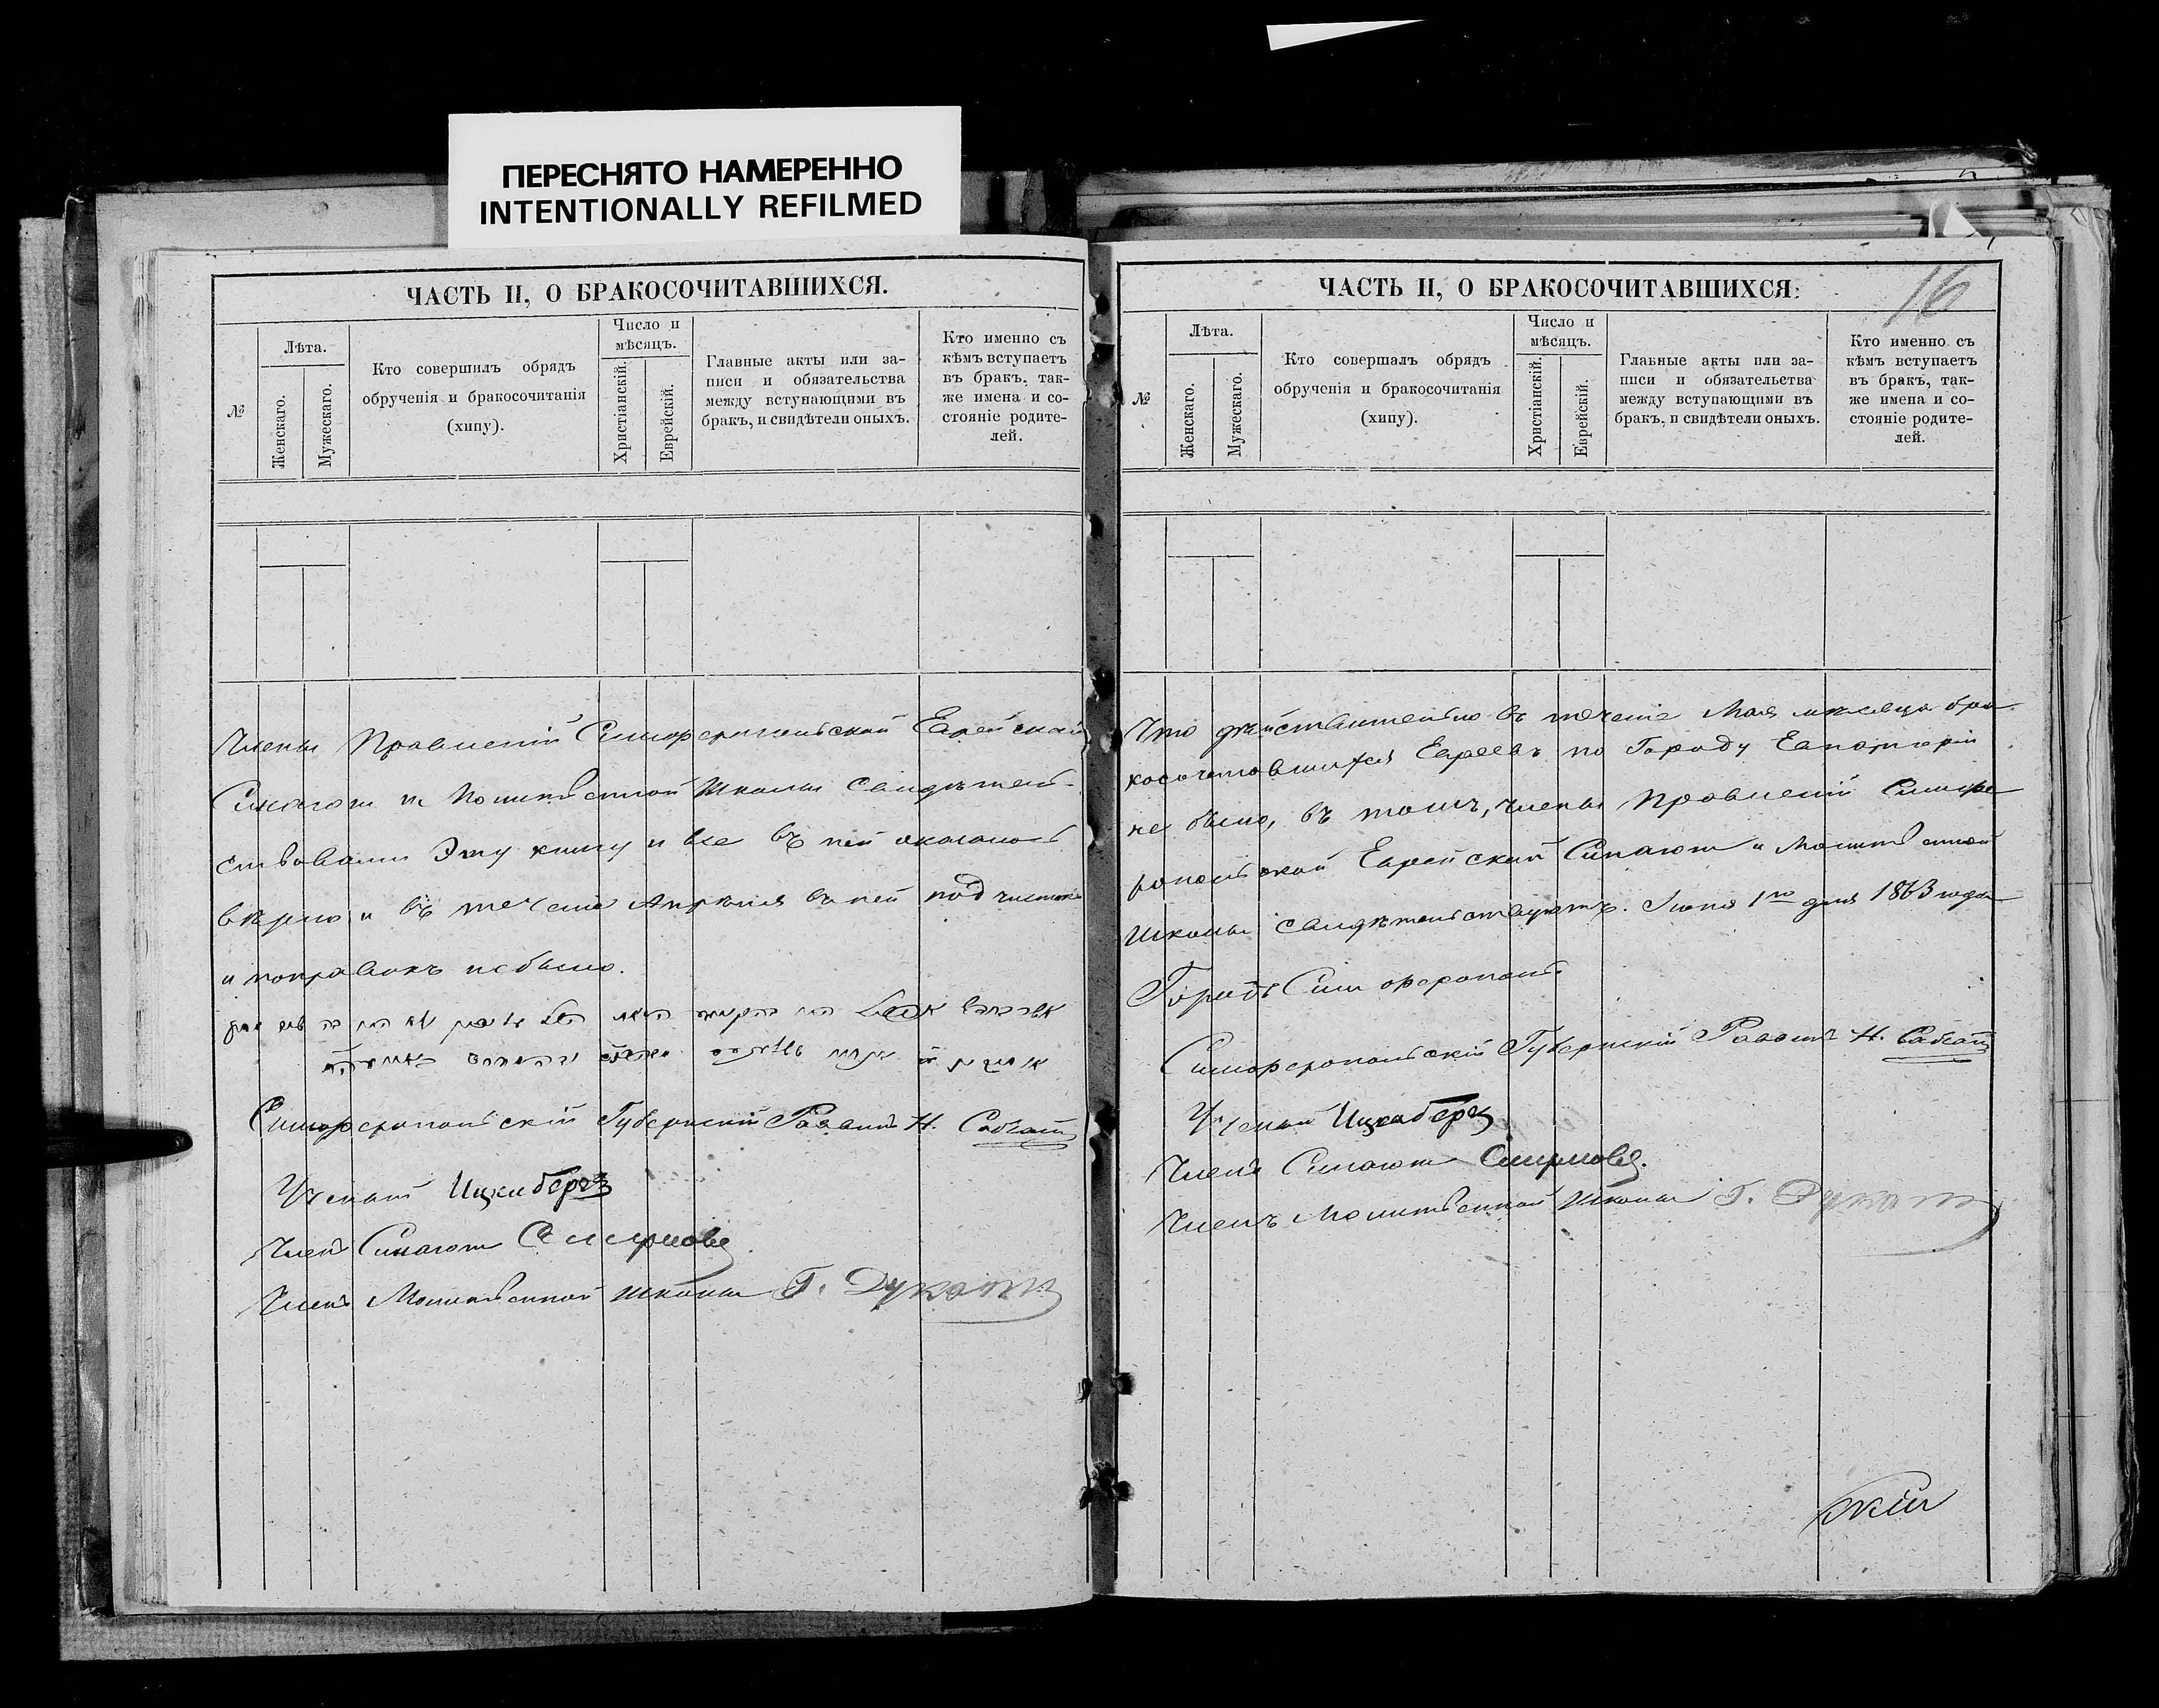 ПЕРЕСНЯТО НАМЕРЕННО
INTENTIONALLY REFILMED
ЧАСТЬ II, О БРАКОСОЧИТАВШИХСЯ.
№
Лѣта.
Женскаго.
Мужескаго.
Кто совершилъ обрядъ
обрученія и бракосочитанія
(хипу).
Число и
мѣсяцъ.
Христіанскій.
Еврейскій.
Главные акты или за-
писи и обязательства
между вступающими въ
бракъ, и свидѣтели оныхъ.
Кто именно съ
кѣмъ вступаетъ
въ бракъ, так-
же имена и со-
стояніе родите-
лей.
Члены Правленій Симферопольской Еврейской
Синагоги и Молитвенной Школы свидѣтель-
ствовали Эту книгу и все въ ней оказалось
вѣрно и въ теченіе Апрѣля въ ней подчистокъ
и поправокъ небыло.
Симферопольскій Губернскій Раввинъ Н.
Ученый Ицкабергъ
Членъ Синагоги Смирновъ
Членъ Молитвенной Школы Г. Дукатъ
ЧАСТЬ II, О БРАКОСОЧИТАВШИХСЯ:
16
№
Лѣта.
Женскаго.
Мужескаго.
Кто совершалъ обрядъ
обрученія и бракосочитанія
(хипу).
Число и
мѣсяцъ.
Христіанскій.
Еврейскій.
Главные акты или за-
писи и обязательства
между вступающими въ
бракъ, и свидѣтели оныхъ.
Кто именно съ
кѣмъ вступаетъ
въ бракъ, так-
же имена и со-
стояніе родите-
лей.
Что дѣйствительно въ теченіе Мая мѣсяца бра-
косочетавшихся Евреевъ по Городу Евпаторіи
не было, въ томъ, члены Правленій Симфе-
ропольской Еврейской Синагоги и Молитвенной
Школы свидѣтельствуютъ. Іюня 1го дня 1863 года
Городъ Симферополь.
Симферопольскій Губернскій Раввинъ Н.
Ученый Ицкабергъ
Членъ Синагоги Смирновъ.
Членъ Молитвенной Школы Г. Дукатъ